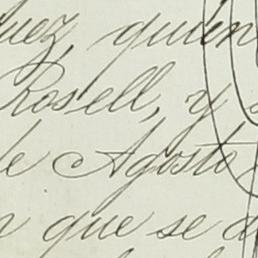 uez, quien
Rosell, y
de Agosto
que se d